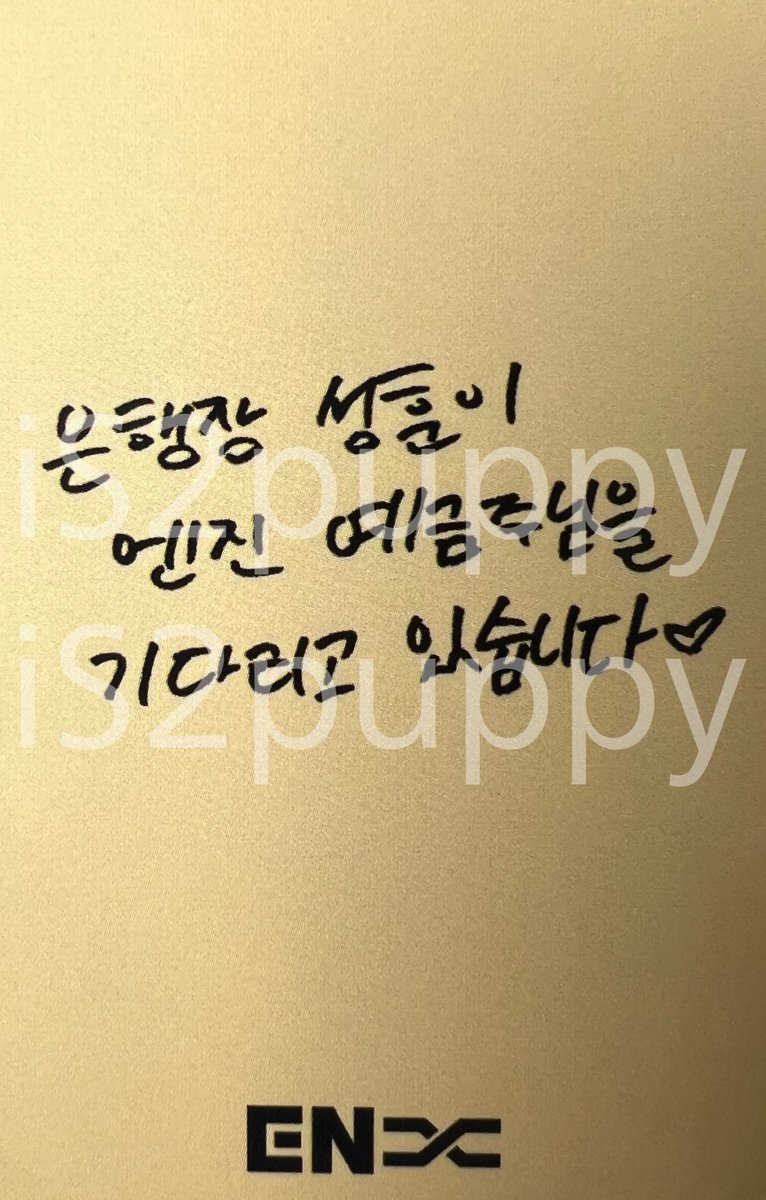 은행장 성훈이
엔진 예금주님을
기다리고 있습니다♡
iS2puppy
iS2puppy
EN-